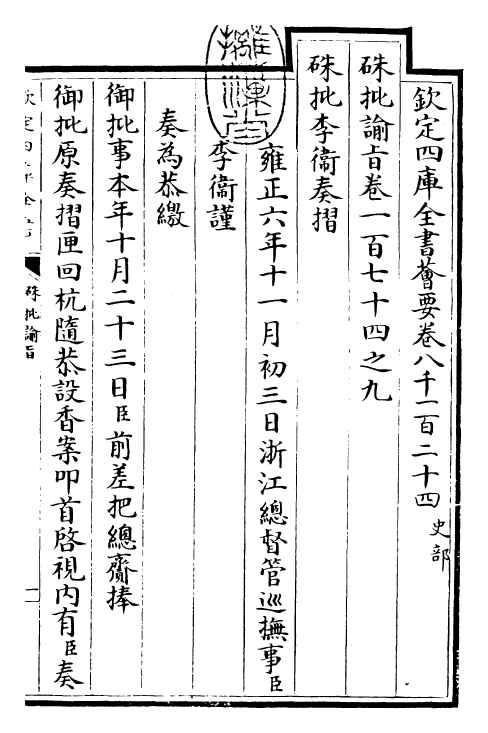 欽定四庫全書薈要卷八千一百二十四 史部
硃批諭旨卷一百七十四之九
硃批李衞奏摺
雍正六年十一月初三日浙江總督管巡撫事臣
李衞謹
奏為恭繳
御批事本年十月二十三日臣前差把總齎捧
御批原奏摺匣回杭隨恭設香案叩首啓視內有臣奏
硃批諭旨
一